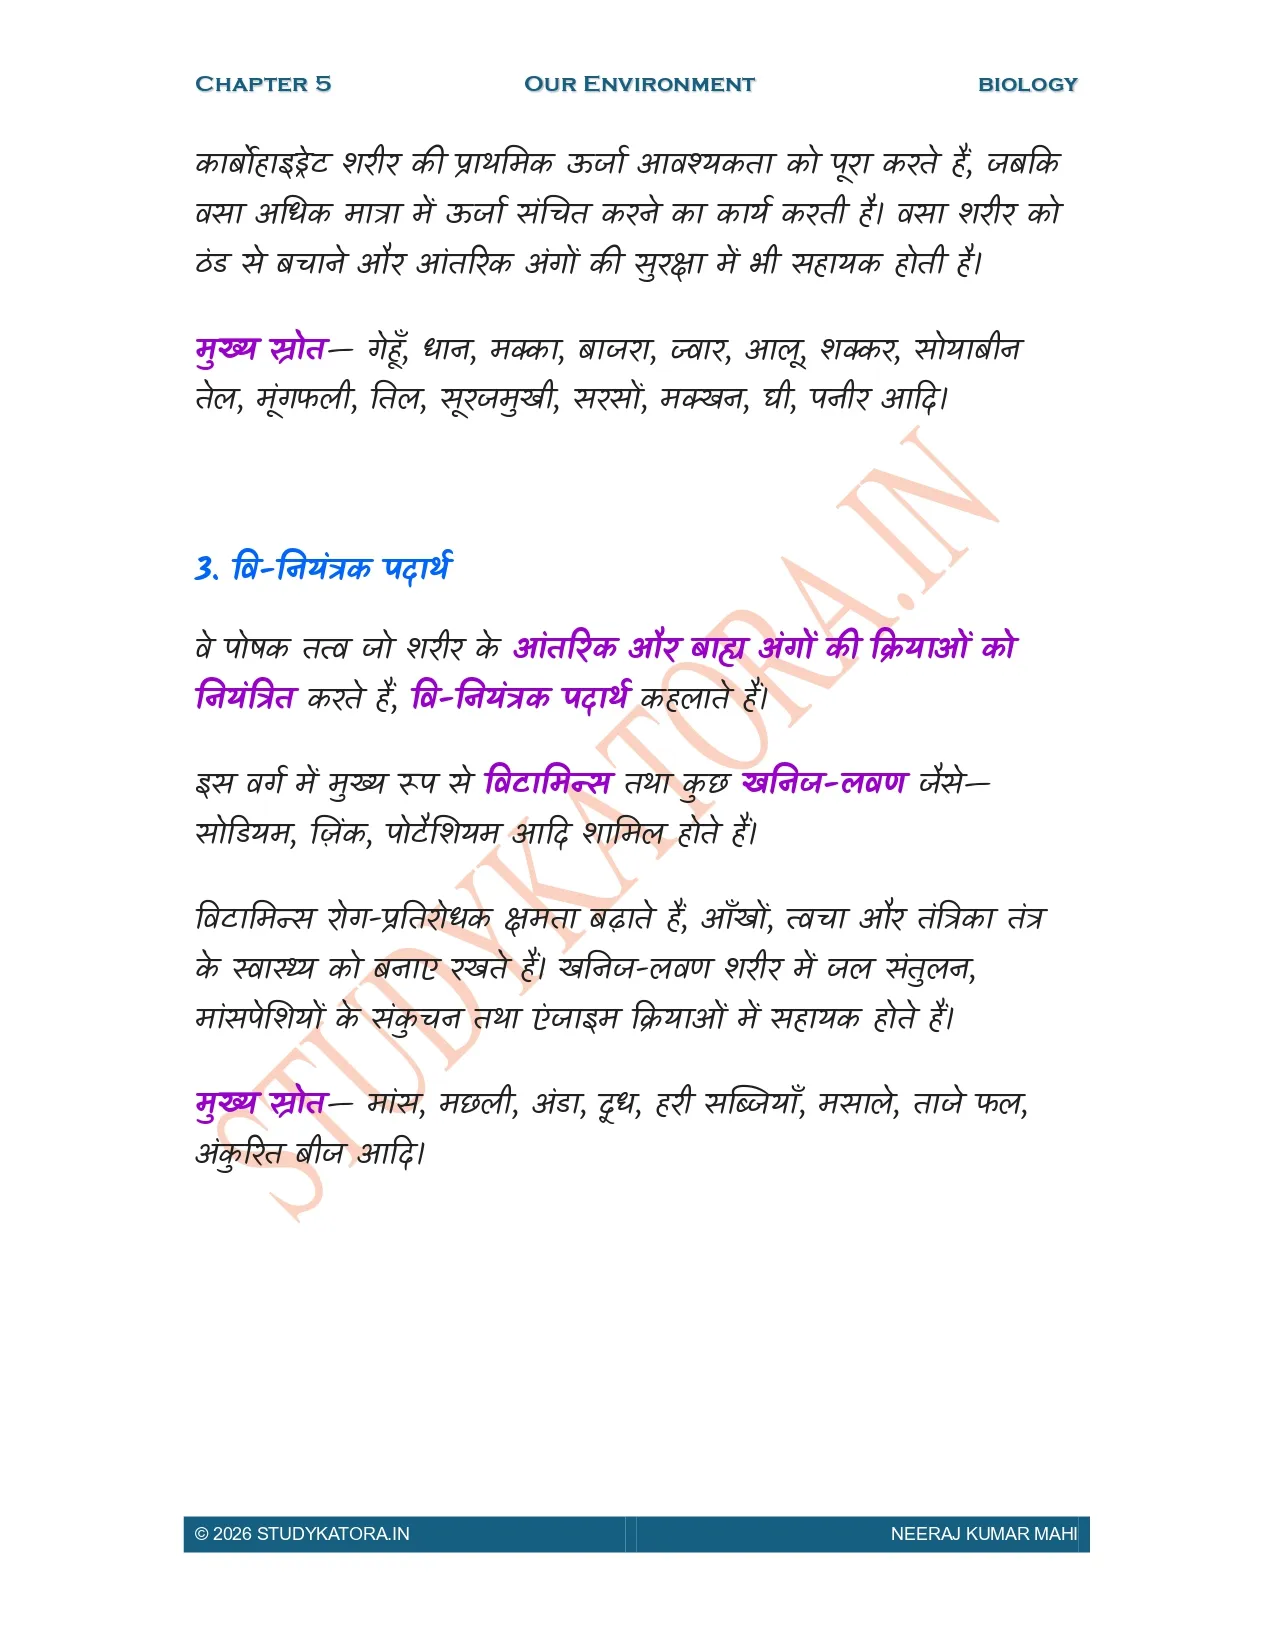 CHAPTER 5 OUR ENVIRONMENT BIOLOGY
कार्बोहाइड्रेट शरीर की प्राथमिक ऊर्जा आवश्यकता को पूरा करते हैं, जबकि
वसा अधिक मात्रा में ऊर्जा संचित करने का कार्य करती है। वसा शरीर को
ठंड से बचाने और आंतरिक अंगों की सुरक्षा में भी सहायक होती है।
मुख्य स्रोत— गेहूँ, धान, मक्का, बाजरा, ज्वार, आलू, शक्कर, सोयाबीन
तेल, मूंगफली, तिल, सूरजमुखी, सरसों, मक्खन, घी, पनीर आदि।
3. वि-नियंत्रक पदार्थ
वे पोषक तत्व जो शरीर के आंतरिक और बाह्य अंगों की क्रियाओं को
नियंत्रित करते हैं, वि-नियंत्रक पदार्थ कहलाते हैं।
इस वर्ग में मुख्य रूप से विटामिन्स तथा कुछ खनिज-लवण जैसे—
सोडियम, ज़िंक, पोटैशियम आदि शामिल होते हैं।
विटामिन्स रोग-प्रतिरोधक क्षमता बढ़ाते हैं, आँखों, त्वचा और तंत्रिका तंत्र
के स्वास्थ्य को बनाए रखते हैं। खनिज-लवण शरीर में जल संतुलन,
मांसपेशियों के संकुचन तथा एंजाइम क्रियाओं में सहायक होते हैं।
मुख्य स्रोत— मांस, मछली, अंडा, दूध, हरी सब्जियाँ, मसाले, ताजे फल,
अंकुरित बीज आदि।
STUDYKATORA.IN
© 2026 STUDYKATORA.IN NEERAJ KUMAR MAHI